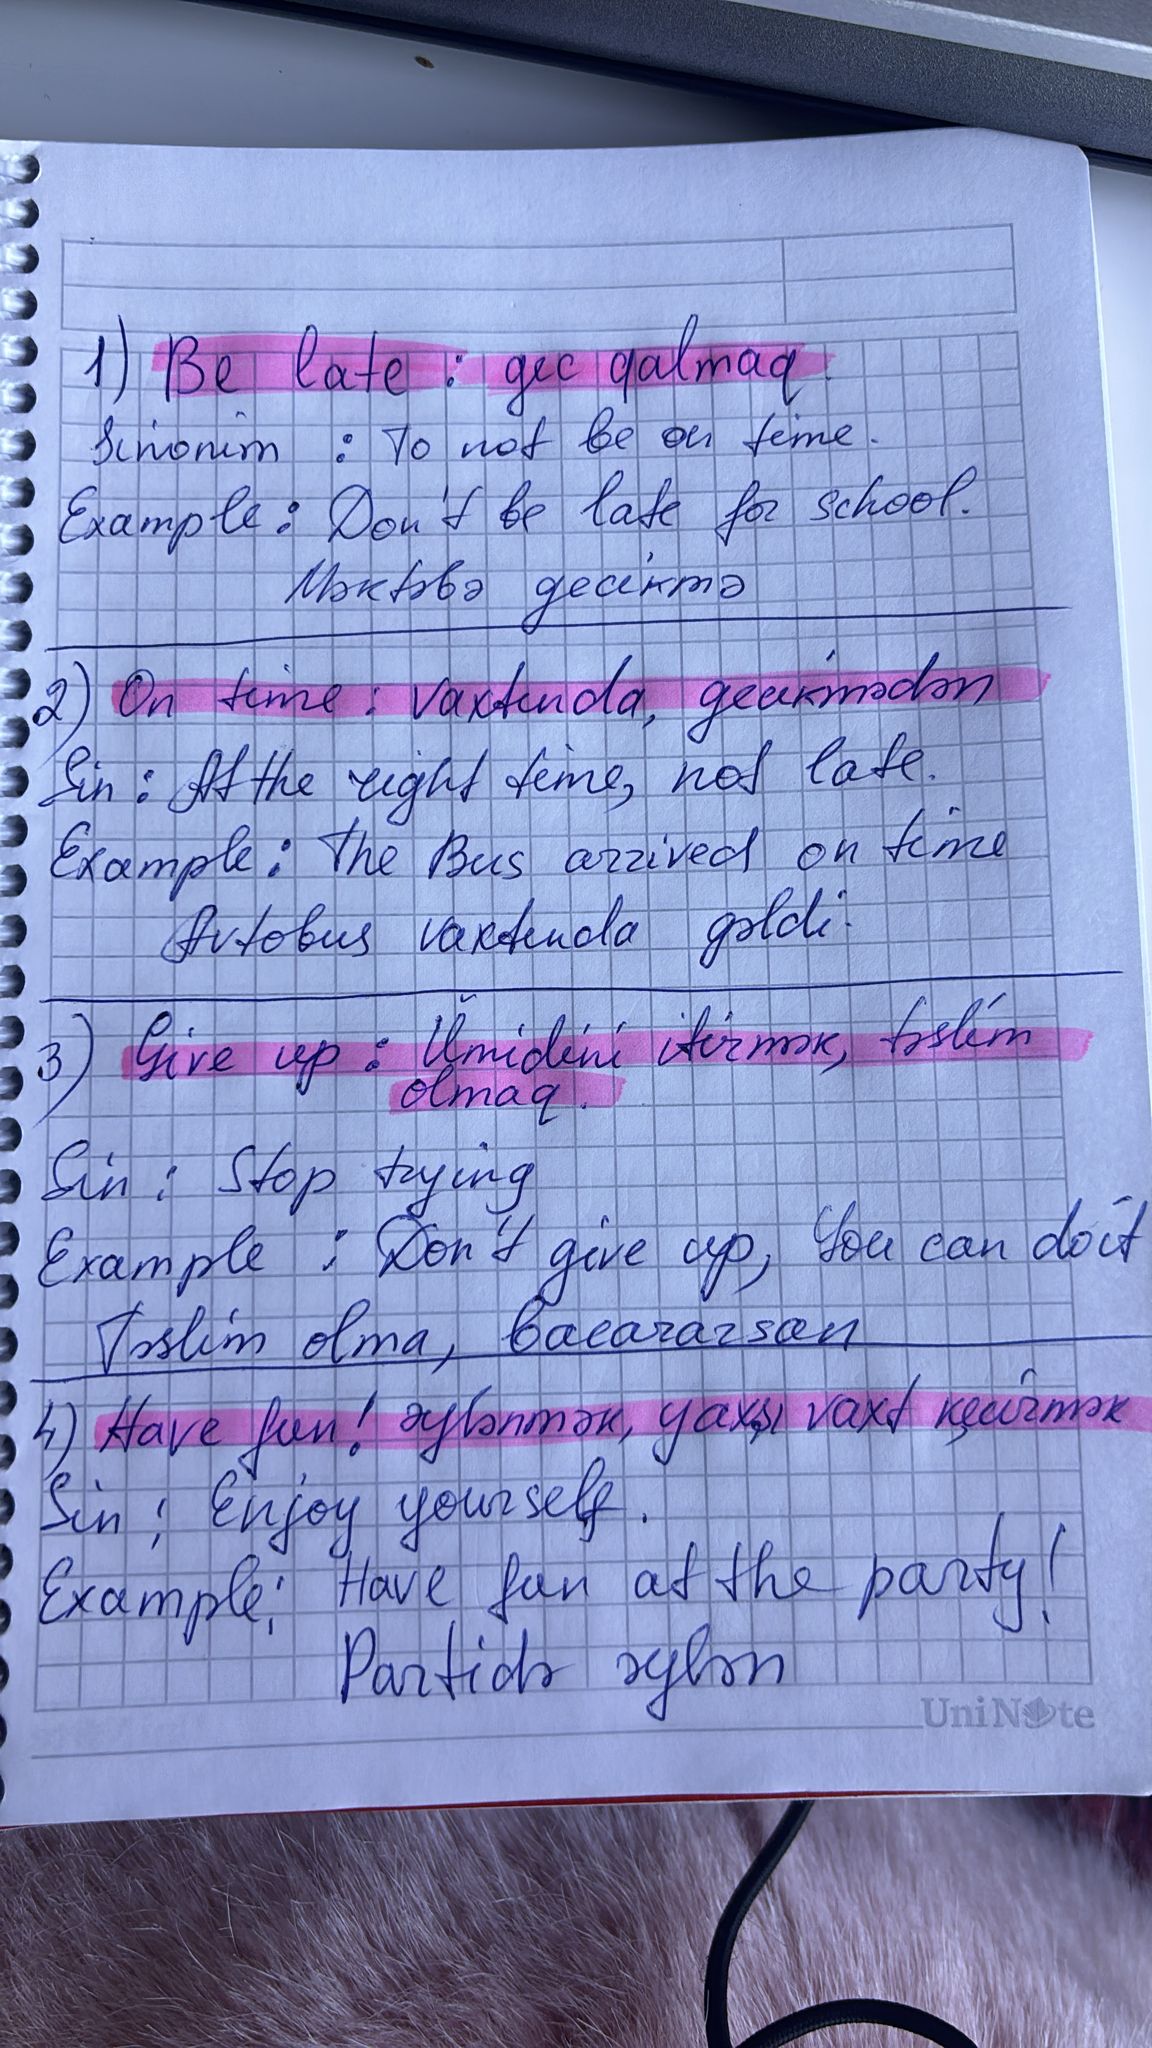 1) Be late : gec qalmaq.
Sinonim : To not be on time.
Example: Don't be late for school.
Məktəbə gecikmə
2) On time : vaxtında, gecikmədən
Sin : At the right time, not late.
Example: The Bus arrived on time
Avtobus vaxtında gəldi.
3) Give up : Ümidini itirmək, təslim
olmaq.
Sin : Stop trying
Example : Don't give up, You can do it
Təslim olma, bacararsan
4) Have fun! əylənmək, yaxşı vaxt keçirmək
Sin : Enjoy yourself.
Example: Have fun at the party!
Partidə əylən
UniNote